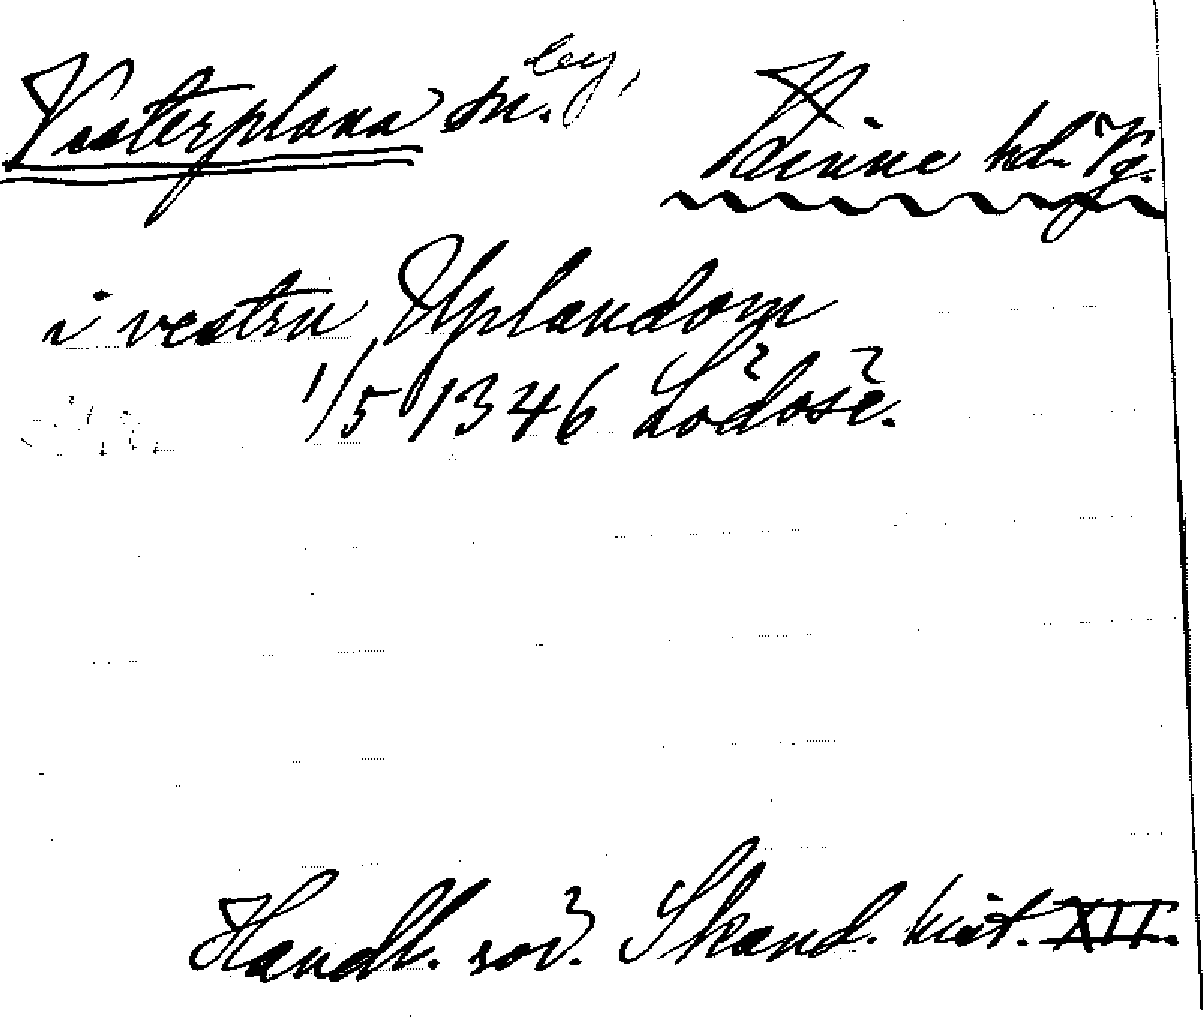 Vesterplana sn. by, Kinne hd. Vg.
i vestru Uplandom
1/5 1346 Lödöse.
Handl. rör. Skand. hist. XII.